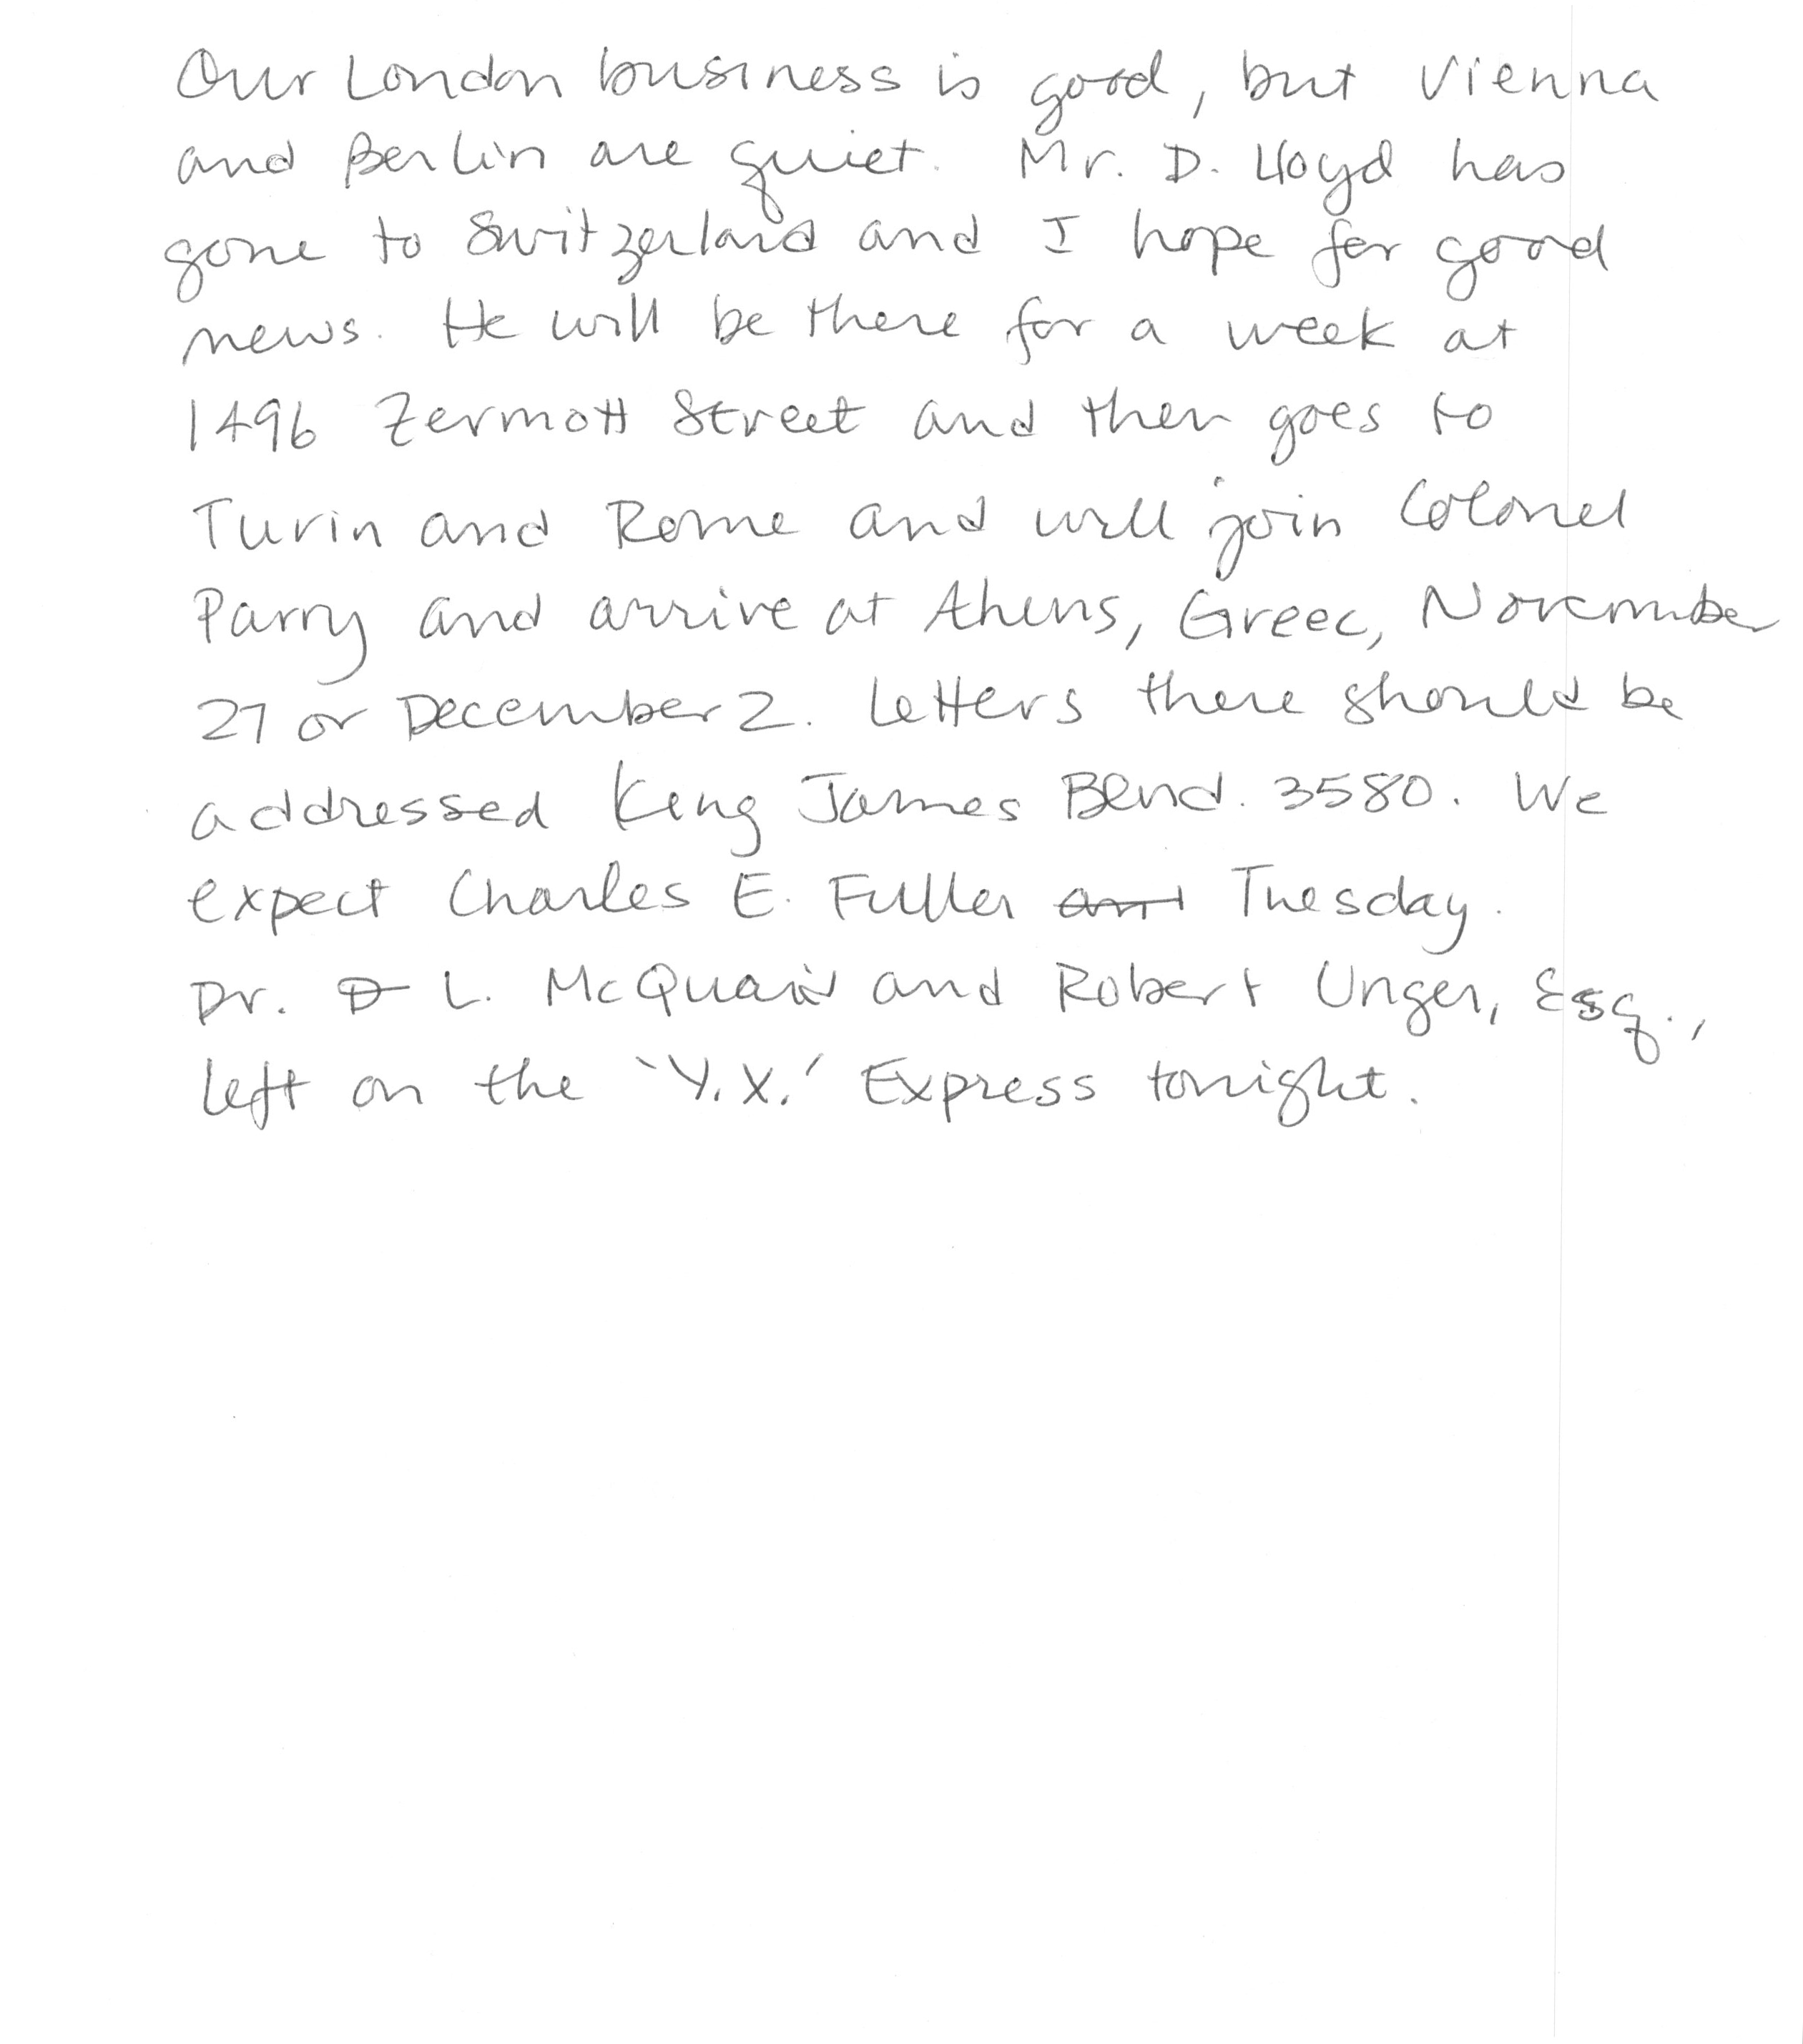 Our London business is good, but Vienna
and Berlin are quiet. Mr. D. Lloyd has
gone to Switzerland and I hope for good
news. He will be there for a week at
1496 Zermott Street and then goes to
Turin and Rome and will join Colonel
Parry and arrive at Athens, Greec, November
27 or December 2. Letters there should be
addressed King James Blvd. 3580. We
expect Charles E. Fuller Tuesday.
Dr. L. McQuaid and Robert Unger, Esq.,
left on the 'Y.X.' Express tonight.